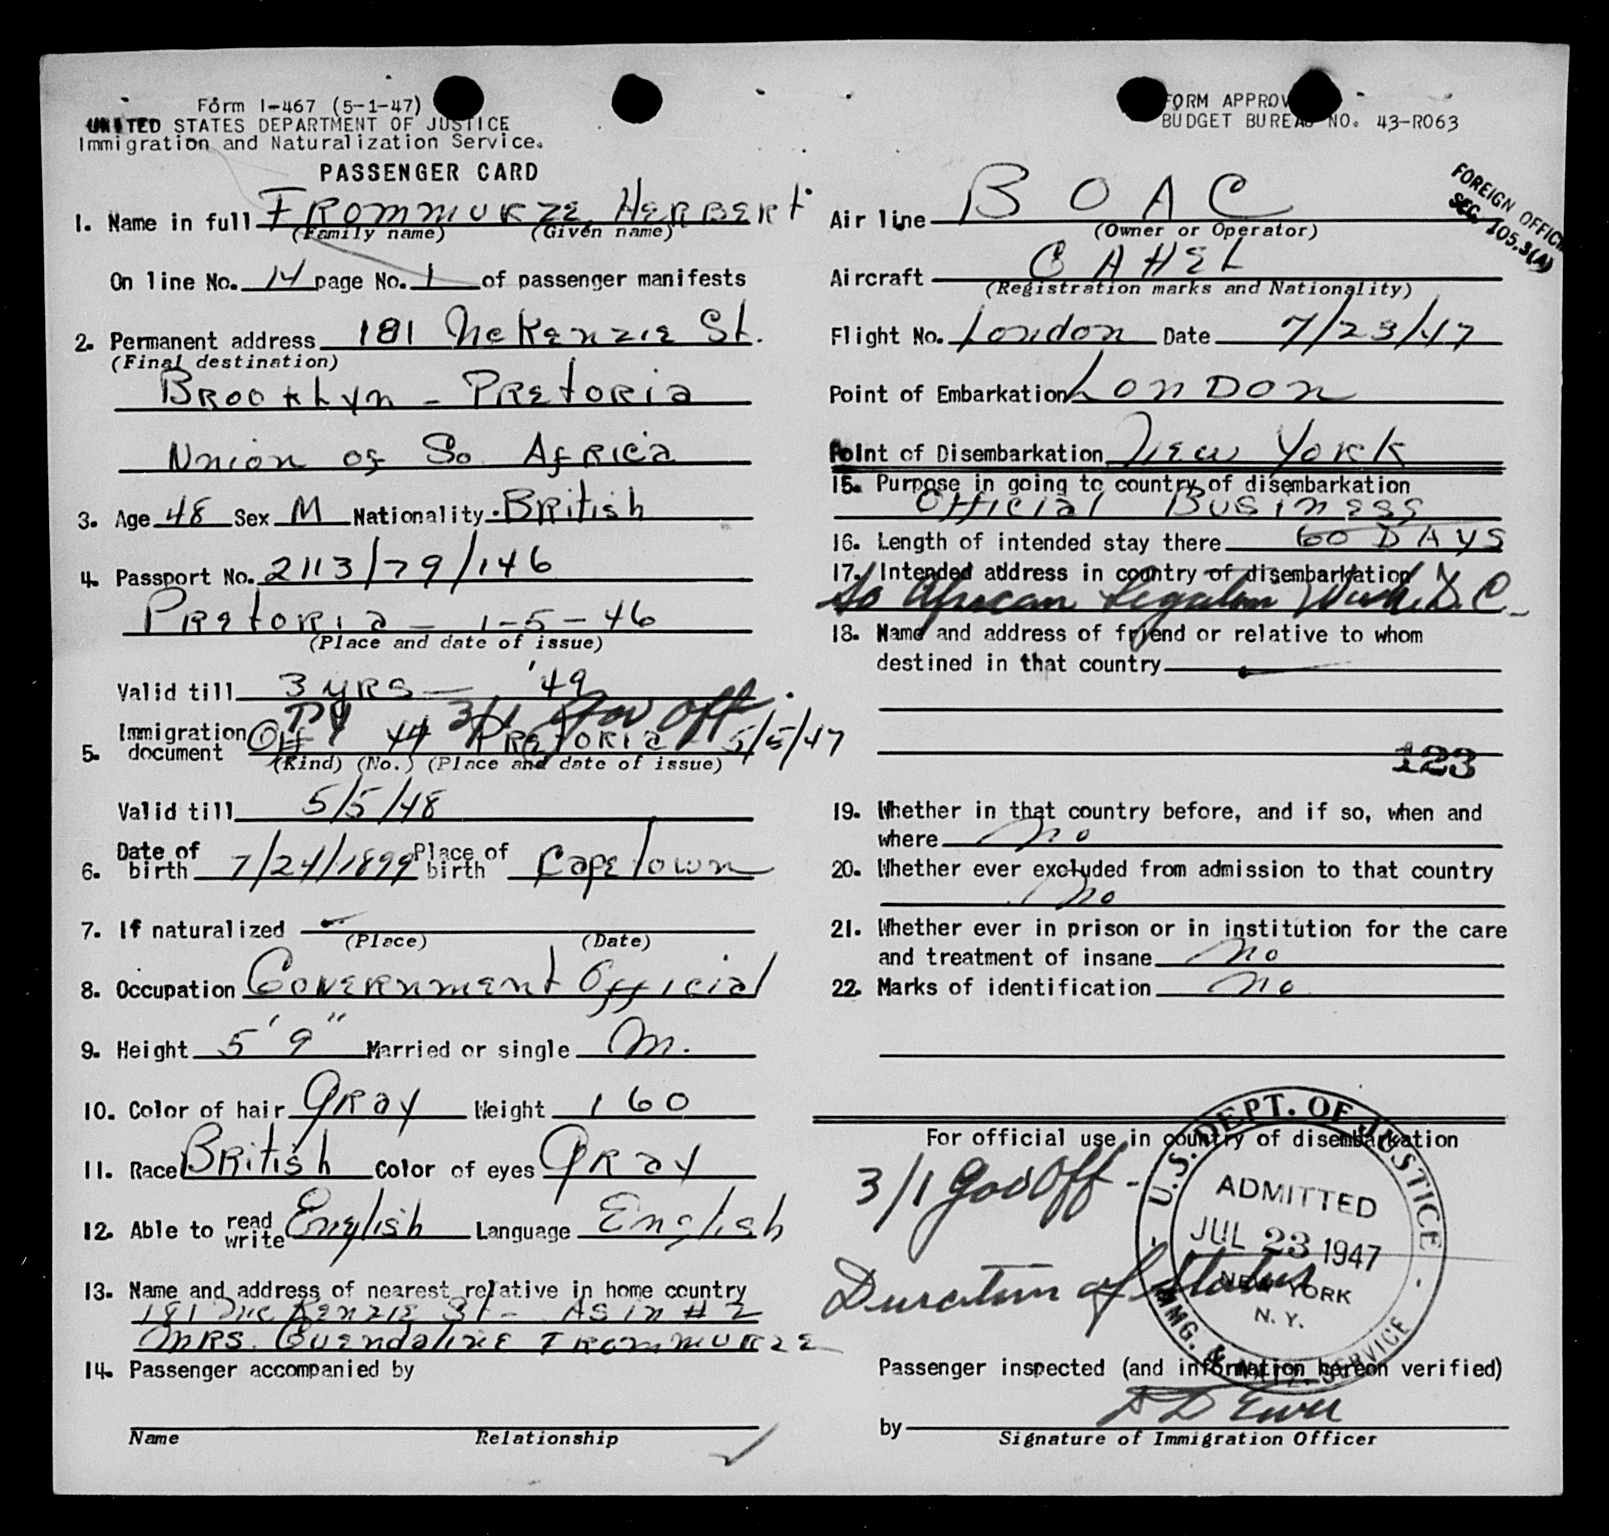 Form I-467 (5-1-47)
UNITED STATES DEPARTMENT OF JUSTICE
Immigration and Naturalization Service.
PASSENGER CARD
1. Name in full FROMMURZE, HERBERT
(Family name) (Given name)
On line No. 14 page No. 1 of passenger manifests
2. Permanent address 181 McKenzie St.
(Final destination)
Brooklyn - Pretoria
Union of So Africa
3. Age 48 Sex M Nationality British
4. Passport No. 2113/79/146
Pretoria - 1-5-46
(Place and date of issue)
Valid till 3 yrs - '49
3/1 Gov Off.
5. Immigration document 44 Pretoria - 5/5/47
(Kind) (No.) (Place and date of issue)
Valid till 5/5/48
6. Date of birth 7/24/1899 Place of birth Capetown
7. If naturalized
(Place) (Date)
8. Occupation Government Official
9. Height 5' 9" Married or single M.
10. Color of hair Gray Weight 160
11. Race British Color of eyes Gray
12. Able to read write English Language English
13. Name and address of nearest relative in home country
181 McKenzie St - As in # 2
Mrs. Guendoline Frommurze
14. Passenger accompanied by
Name Relationship
FORM APPROV
BUDGET BUREAU NO. 43-R063
FOREIGN OFFICI
SEC. 105.3(A)
Air line BOAC
(Owner or Operator)
Aircraft GAHEL
(Registration marks and Nationality)
Flight No. London Date 7/23/47
Point of Embarkation London
Point of Disembarkation New York
15. Purpose in going to country of disembarkation
Official Business
16. Length of intended stay there 60 DAYS
17. Intended address in country of disembarkation
So African Legation Wash. D.C.
18. Name and address of friend or relative to whom
destined in that country
123
19. Whether in that country before, and if so, when and
where no
20. Whether ever excluded from admission to that country
no
21. Whether ever in prison or in institution for the care
and treatment of insane no
22. Marks of identification no
For official use in country of disembarkation
3/1 Gov Off -
Duration of Status
U.S. DEPT. OF JUSTICE
ADMITTED
JUL 23 1947
NEW YORK
N.Y.
IMMG. & NATZ. SERVICE
Passenger inspected (and information hereon verified)
by
Signature of Immigration Officer